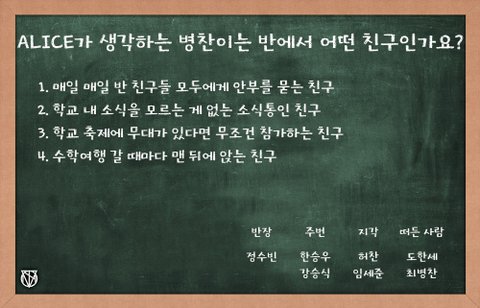 ALICE가 생각하는 병찬이는 반에서 어떤 친구인가요?
1. 매일 매일 반 친구들 모두에게 안부를 묻는 친구
2. 학교 내 소식을 모르는 게 없는 소식통인 친구
3. 학교 축제에 무대가 있다면 무조건 참가하는 친구
4. 수학여행 갈 때마다 맨 뒤에 앉는 친구
반장 주번 지각 떠든 사람
정수빈 한승우 허찬 도한세
강승식 임세준 최병찬